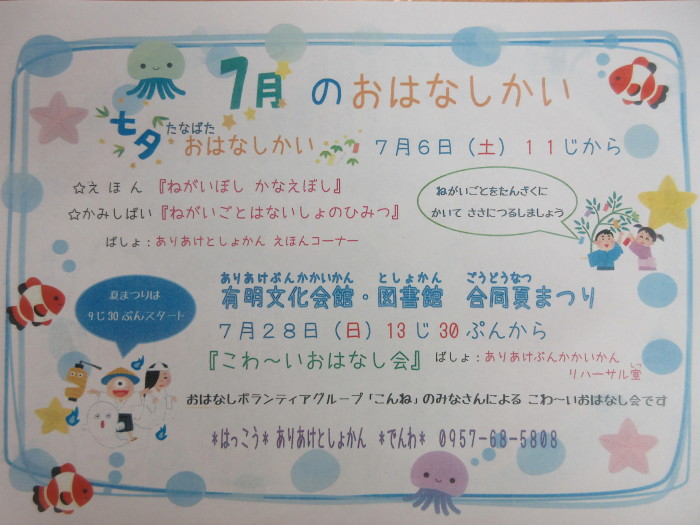 7月 のおはなしかい
七夕 たなばた おはなしかい 7月6日(土) 11じから
☆えほん『ねがいぼし かなえぼし』
☆かみしばい『ねがいごとはないしょのひみつ』
ばしょ:ありあけとしょかん えほんコーナー
ねがいごとをたんざくに
かいて ささにつるしましょう
夏まつりは
9じ30ぷんスタート
ありあけぶんかかいかん としょかん ごうどうなつ
有明文化会館・図書館 合同夏まつり
7月28日(日)13じ30ぷんから
『こわ～いおはなし会』 ばしょ:ありあけぶんかかいかん
しつ
リハーサル室
おはなしボランティアグループ「こんね」のみなさんによる こわ～いおはなし会です
*はっこう* ありあけとしょかん *でんわ* 0957-68-5808